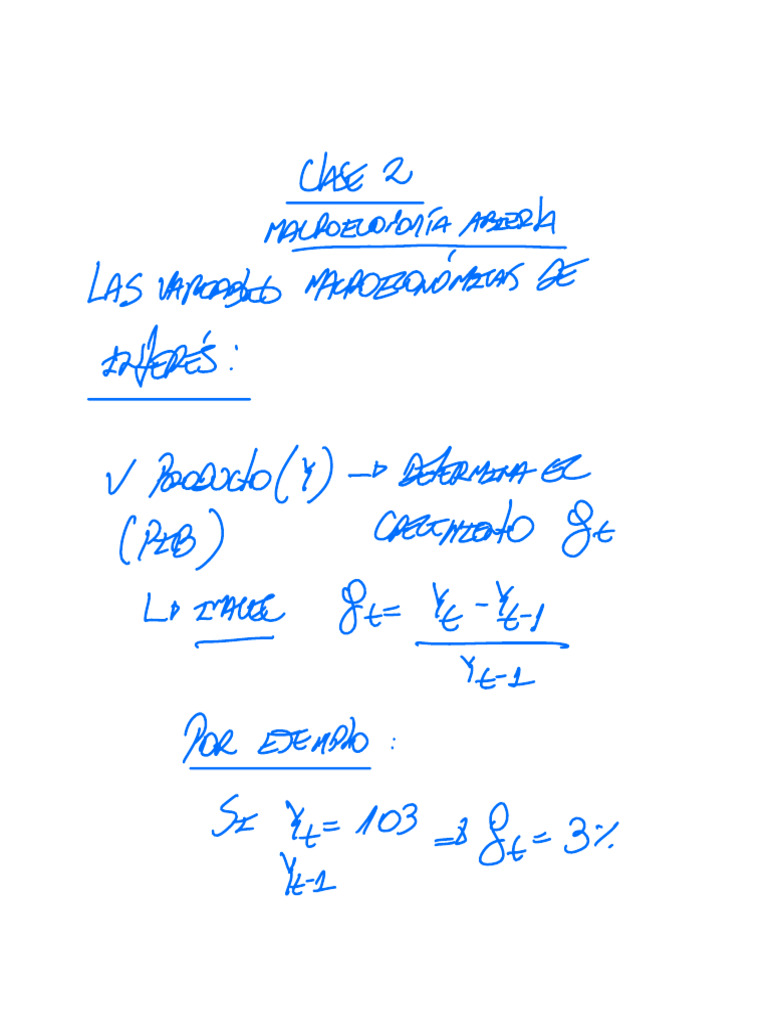 CLASE 2
MACROECONOMÍA ABIERTA
LAS VARIABLES MACROECONÓMICAS DE
INTERÉS:
✓ PRODUCTO (Y) → DETERMINA EL
(PIB) CRECIMIENTO g_t
↳ IMACEC g_t = (Y_t - Y_t-1) / Y_t-1
POR EJEMPLO:
SI Y_t = 103 ⇒ g_t = 3%
Y_t-1